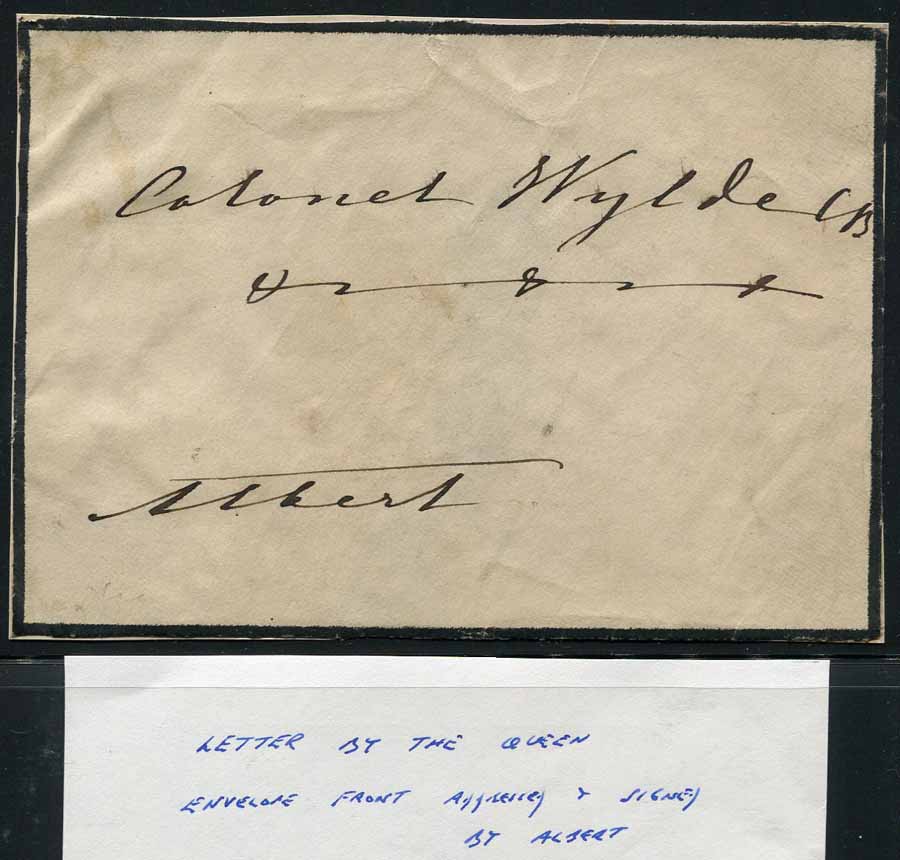 Colonel Wylde CB
&c &c &c
Albert
LETTER BY THE QUEEN
ENVELOPE FRONT Addressed & SIGNED
BY ALBERT